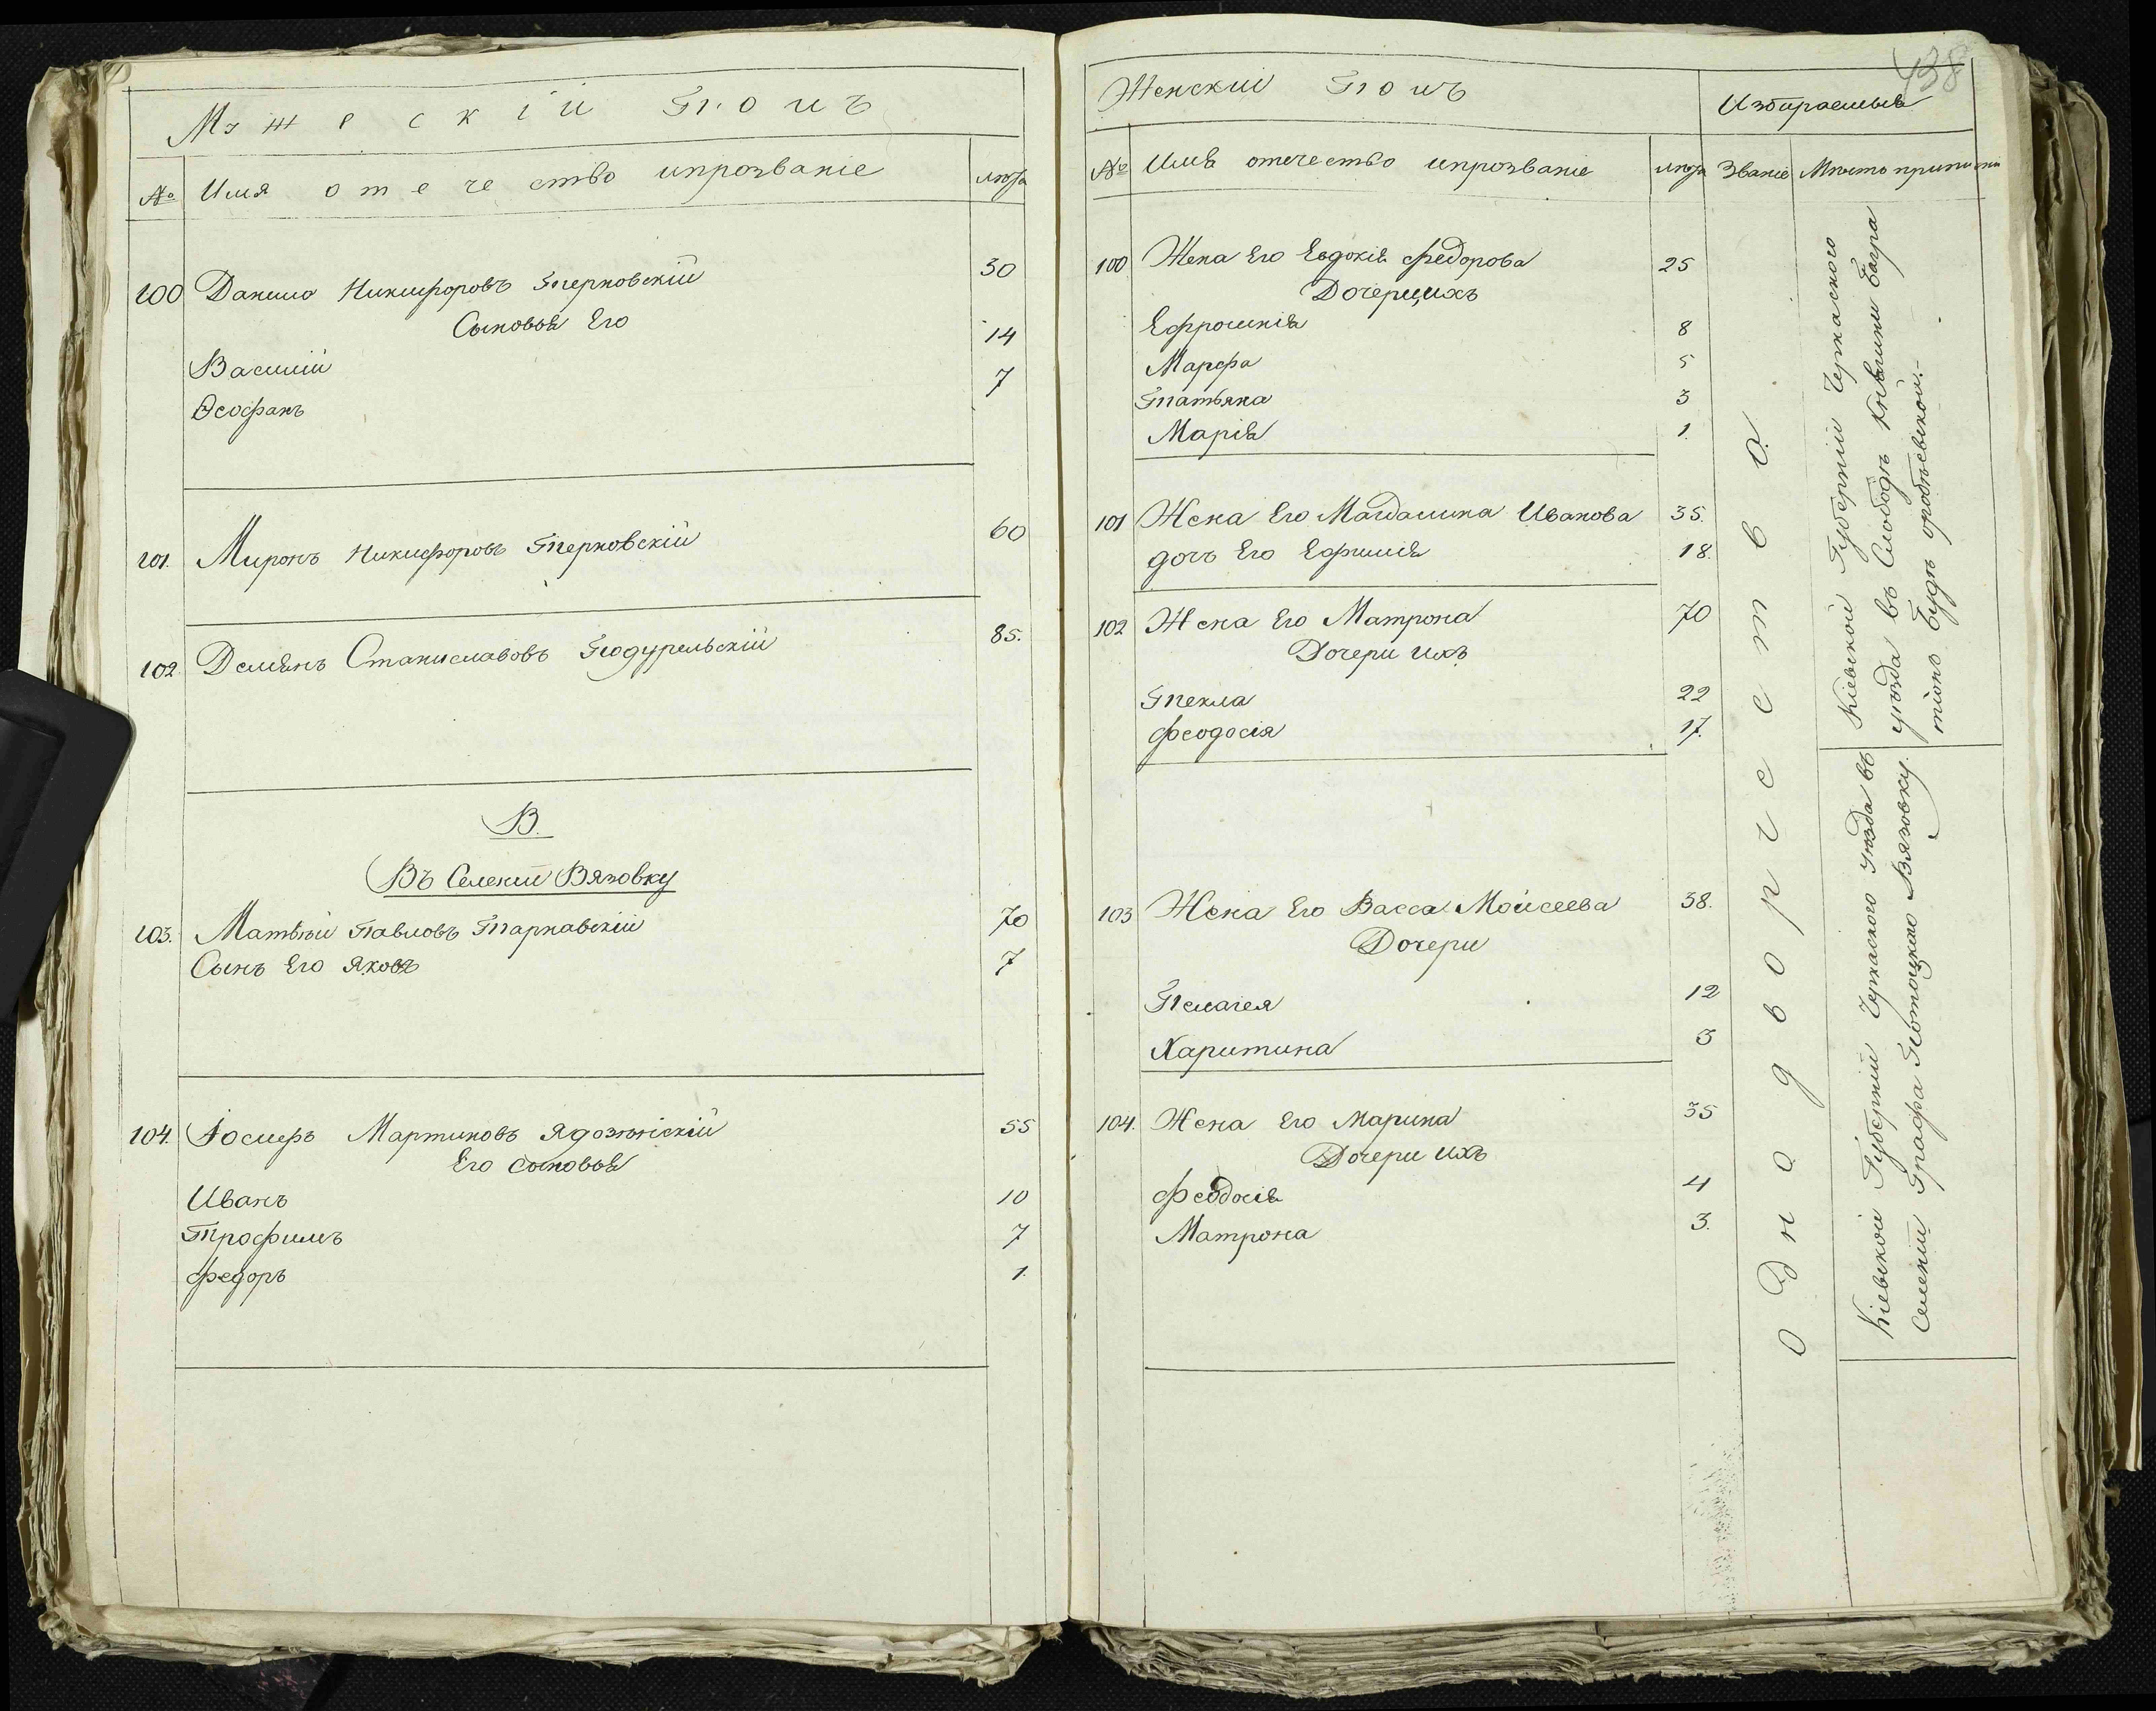 Мужескій Полъ
№ Имя отечество ипрозваніе лѣта
100 Данило Никифоровъ Терновскій 30
Сыновья Его
Василій 14
Ѳеофанъ 7
101. Миронъ Никифоровъ Терновскій 60
102. Демянъ Станиславовъ 85.
В.
Въ Селеніи Вязовку
103. Матвѣй Павловъ Тарнавскій 70
Сынъ Его Яковъ 7
104. Іосифъ Мартиновъ 55
Его сыновья
Иванъ 10
Трофимъ 7
Федоръ 1.
438
Женскій Полъ
Избираемыя
№ Имя отечество ипрозваніе лѣта Званіе Мѣсто приписки
100 Жена Его Евдокія Федорова 25
Дочери ихъ
Ефросинія 8
Марфа 5
Татьяна 3
Марія 1.
101 Жена Его Магдалина Иванова 35.
дочь Его Ефимія 18.
102 Жена Его Матрона 70
Дочери ихъ
Текла 22
Феодосія 17.
103 Жена Его Васса Моисеева 38.
Дочери
Пелагея 12
Харитина 3
104. Жена Его Марина 35
Дочери ихъ
Феодосія 4
Матрона 3.
Однодворчества.
Кіевской Губерніи Черкаского
уѣзда въ Слободѣ Княгини
Кіевской Губерніи Черкаского уѣзда въ
Селеніи Графа Потоцкаго Вязовку.